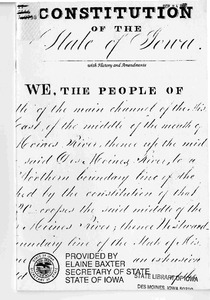 CONSTITUTION
OF THE
State of Iowa.
with History and Amendments
WE, THE PEOPLE OF
of the main channel of the
East, of the middle of the mouth of
Moines River, thence up the mid
said Des Moines River, to a
Northern boundary line of the
by the constitution of that
the said middle of the
Moines River; thence Westward
boundary line of the State of
an extension
PROVIDED BY
ELAINE BAXTER
SECRETARY OF STATE
STATE OF IOWA
STATE LIBRARY OF IOWA
DES MOINES, IOWA